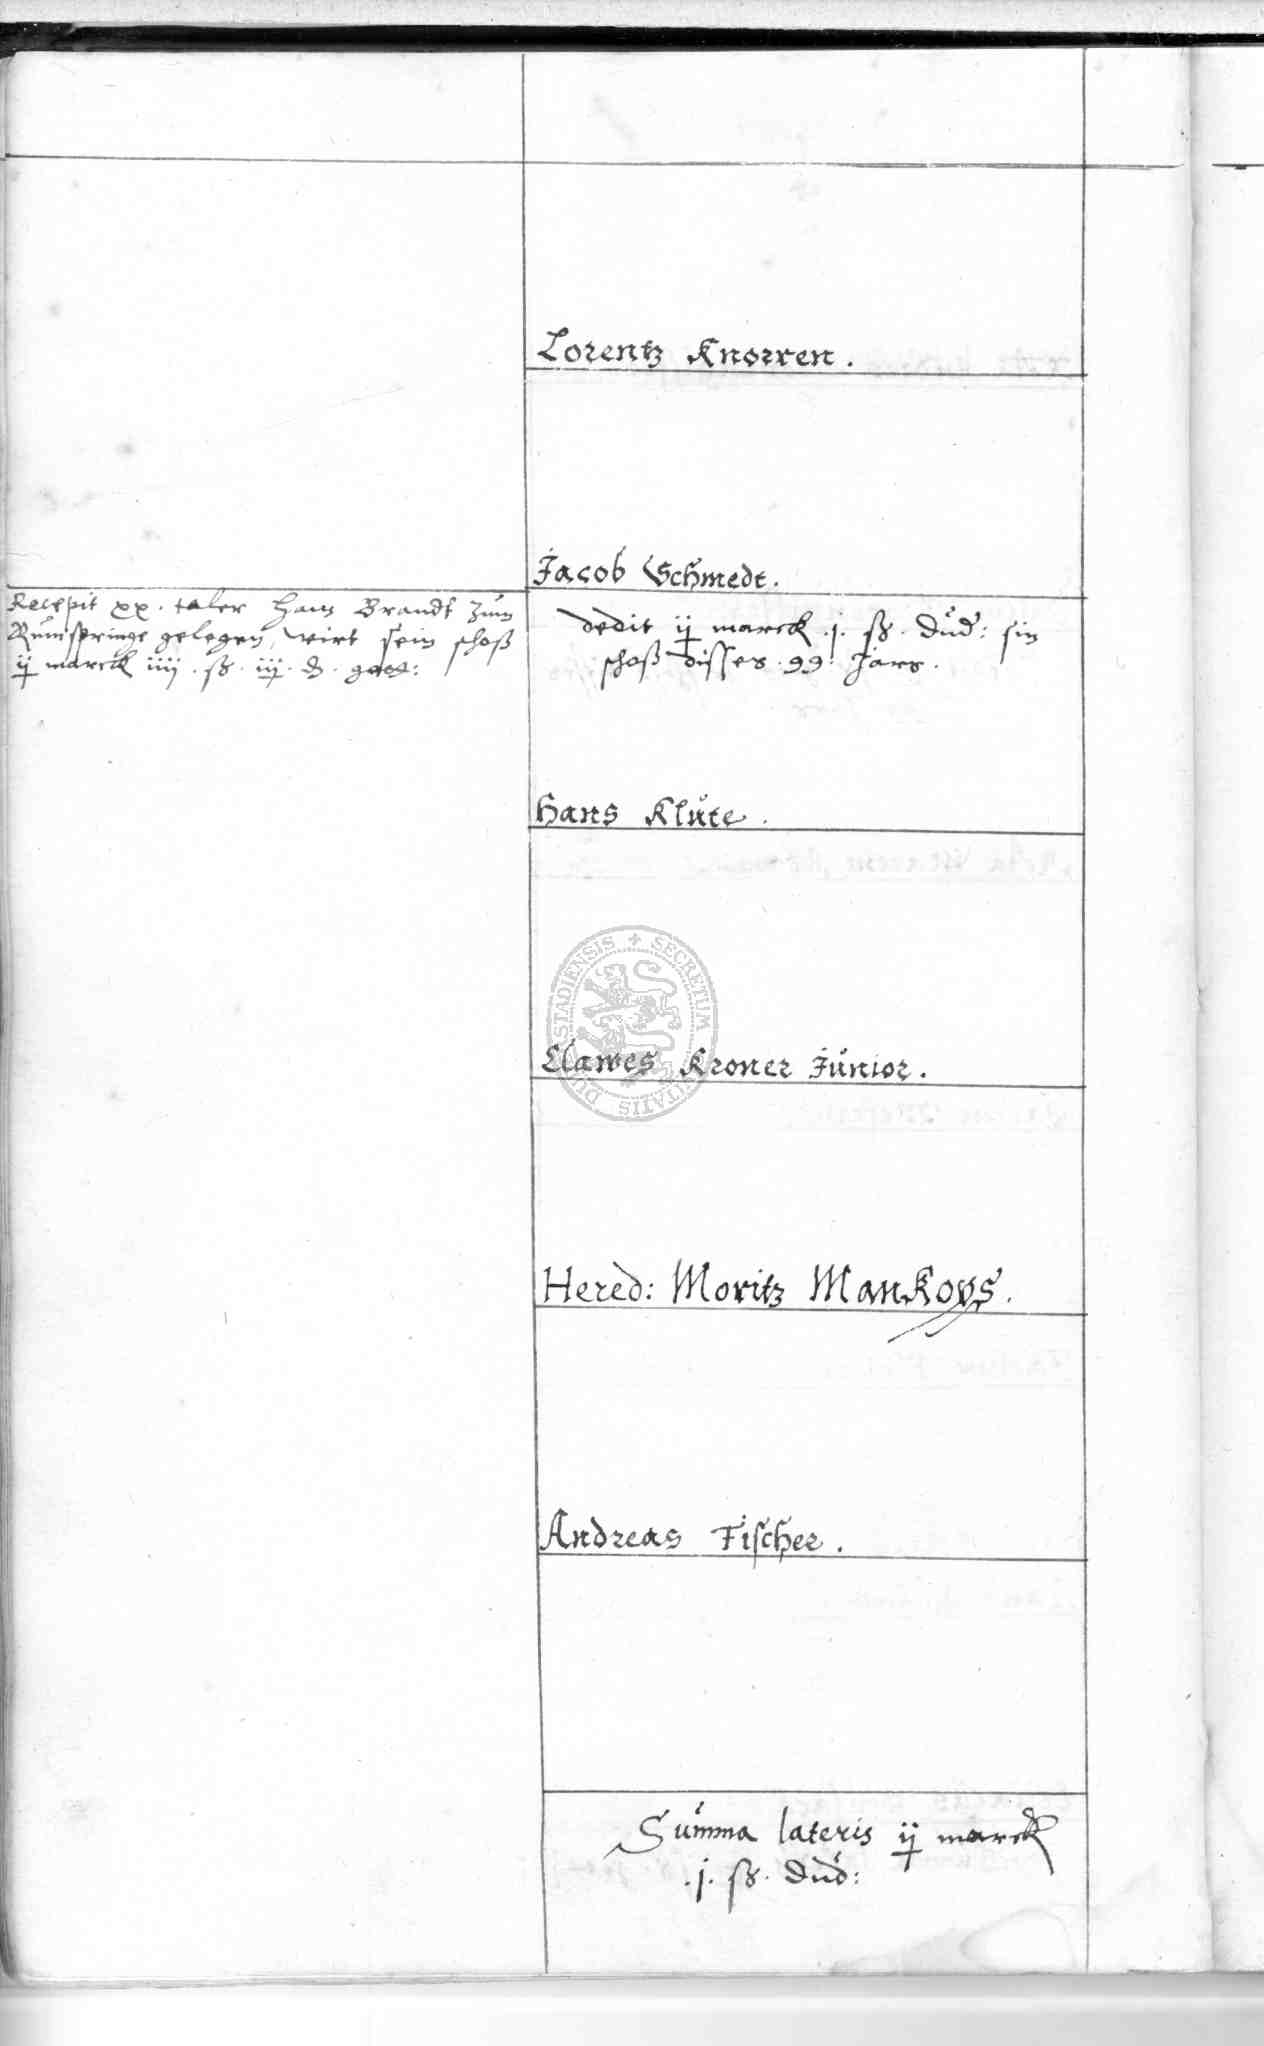 Lorentz Knorren.
Jacob Schmedt.
Recepit xx. taler Hans Brandt zum
Rumspringe gelegen, wirt sein schoß
ij marck iiij. ß. iij. d.
dedit ij marck .j. ß. Dud: sin
schoß disses .99. Jars.
Hans Klute.
Clawes Kroner Junior.
Hered: Moritz Mankovs.
Andreas Fischer.
Summa lateris ij marck
.j. ß. Dud:
SECRETUM CIVITATIS DUDERSTADIENSIS